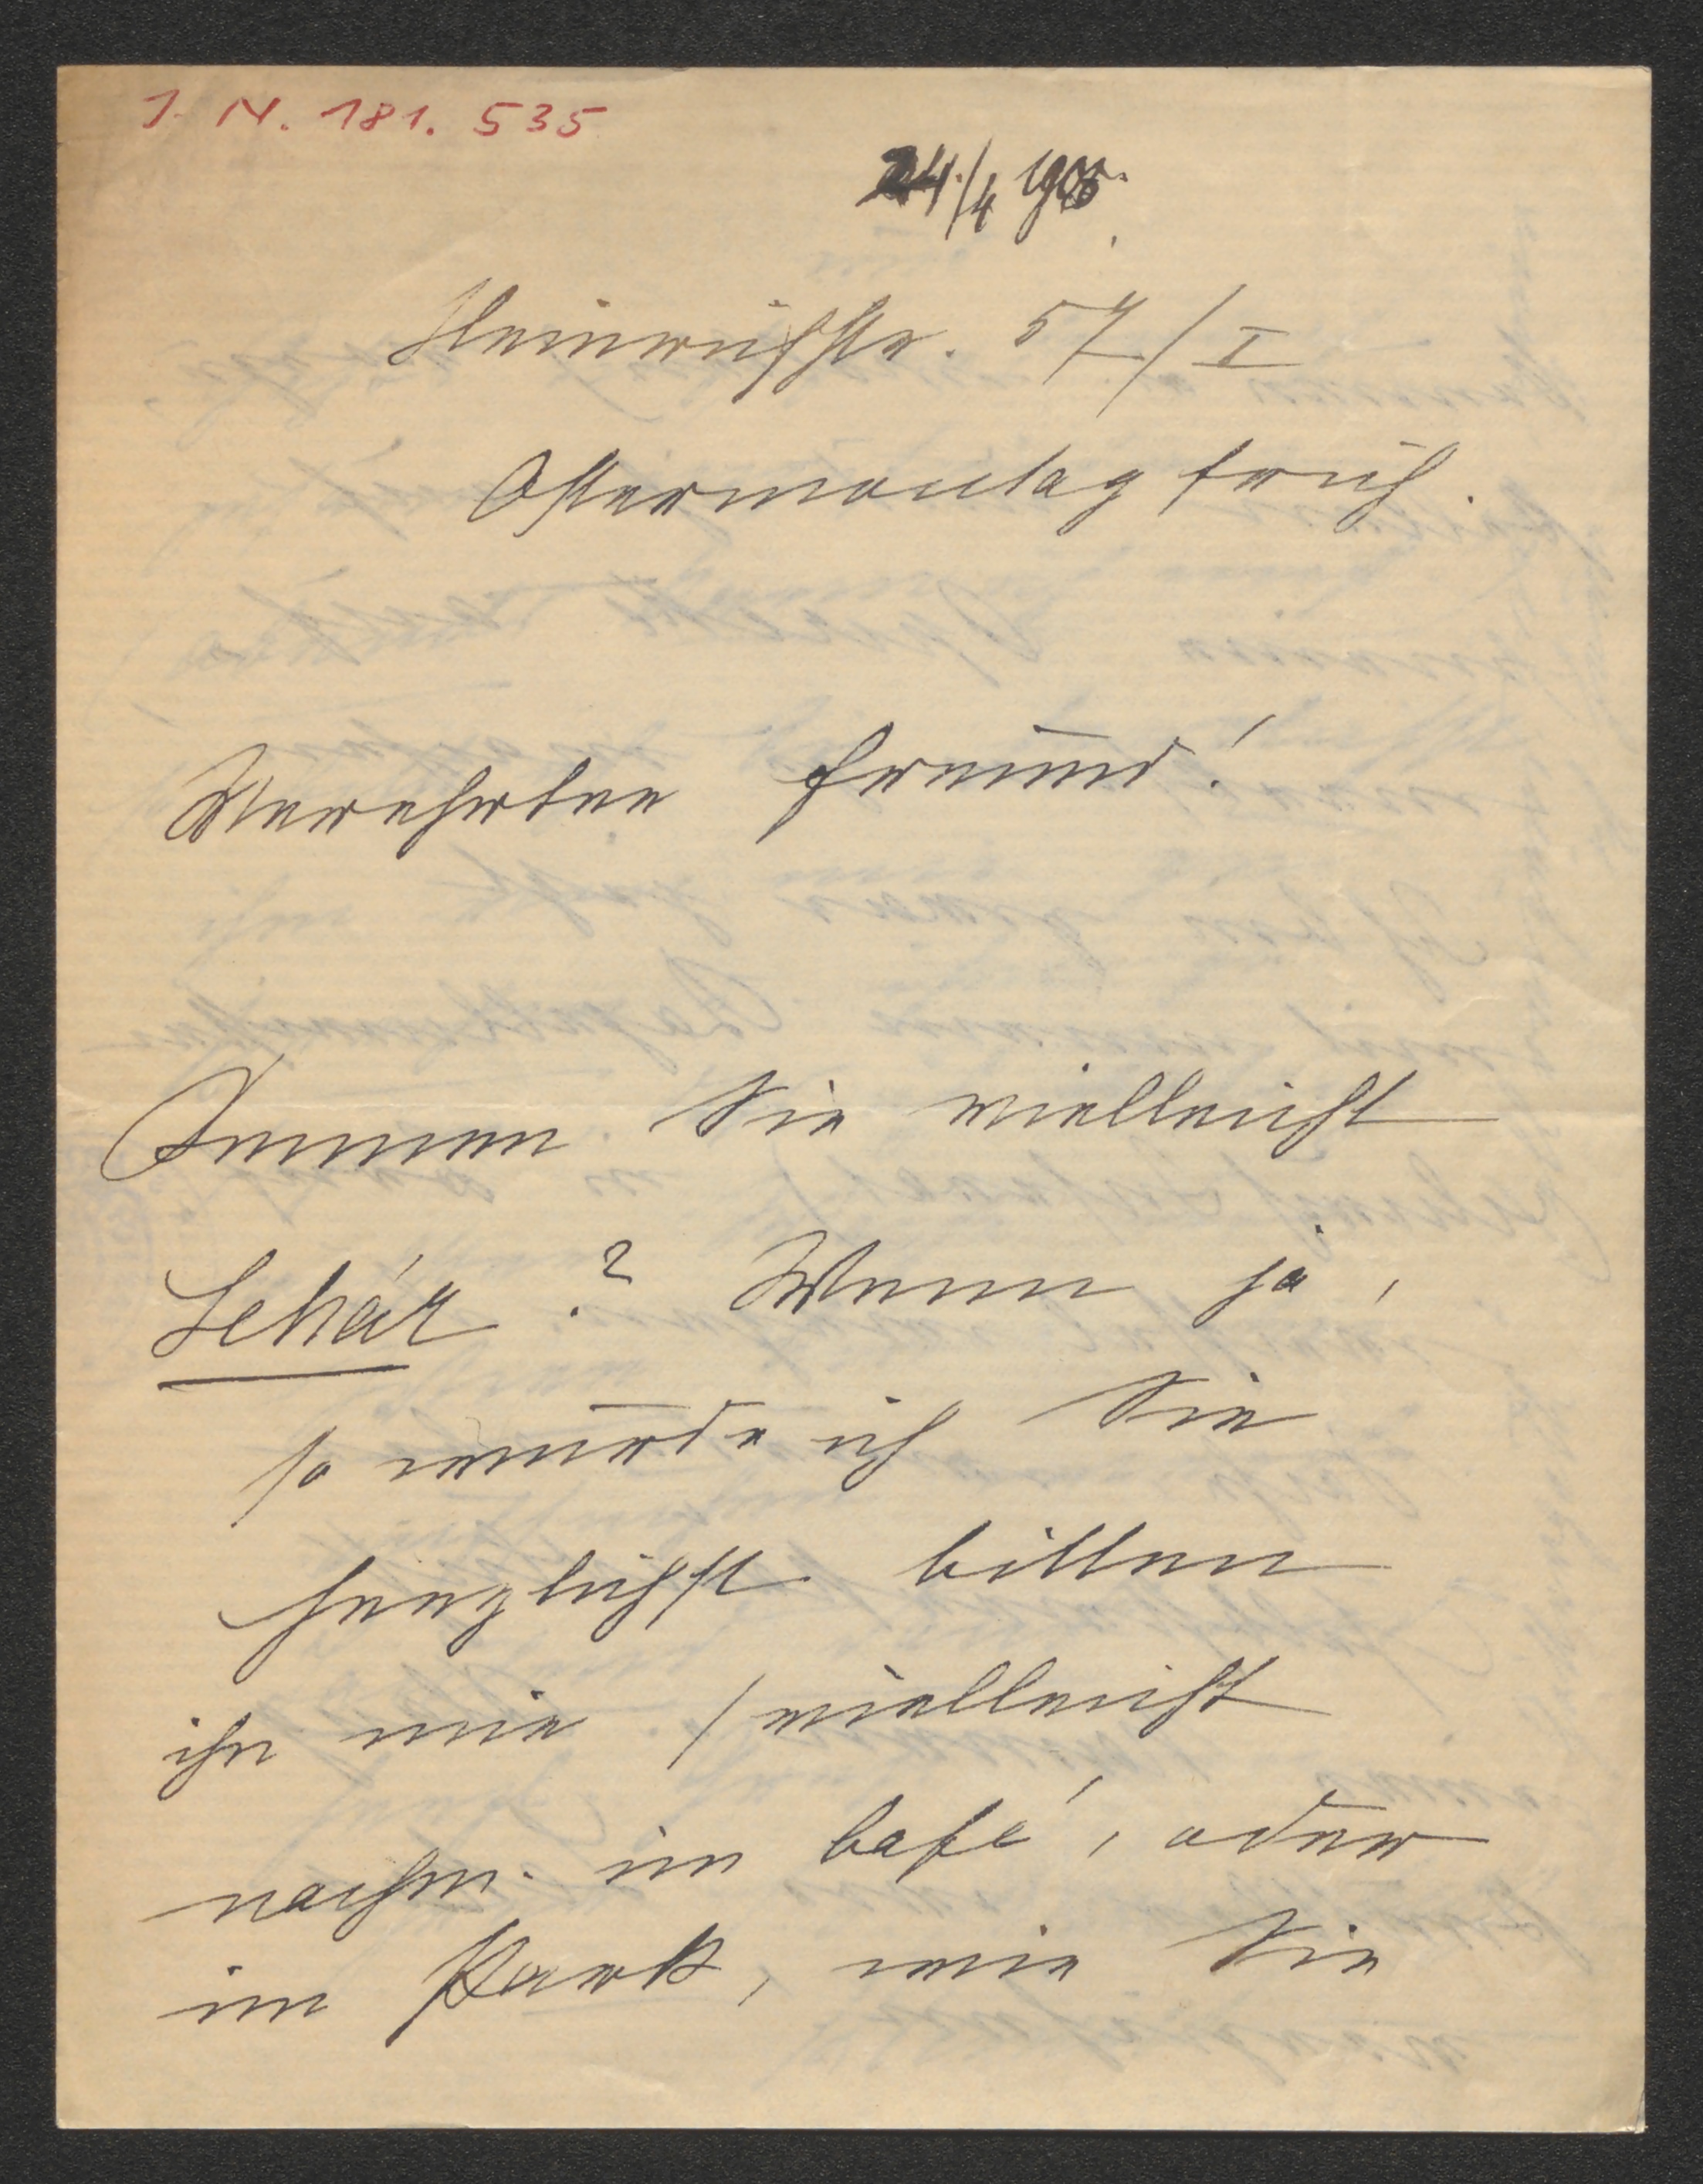 I. N. 181. 535
24./4 1905.
Heinrichstr. 57/I
Ostermontag früh.
Verehrter Freund!
Kennen Sie vielleicht
Lehár? Wenn ja,
so würde ich Sie
herzlichst bitten
ihn mir / vielleicht
nachm. im Café, oder
im Park, wie Sie